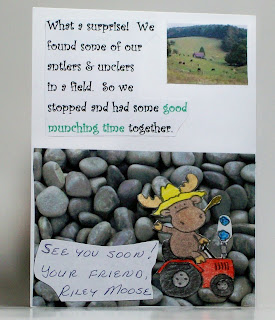 What a surprise! We
found some of our
antlers & unclers
in a field. So we
stopped and had some good
munching time together.
SEE YOU SOON!
YOUR FRIEND,
RILEY MOOSE